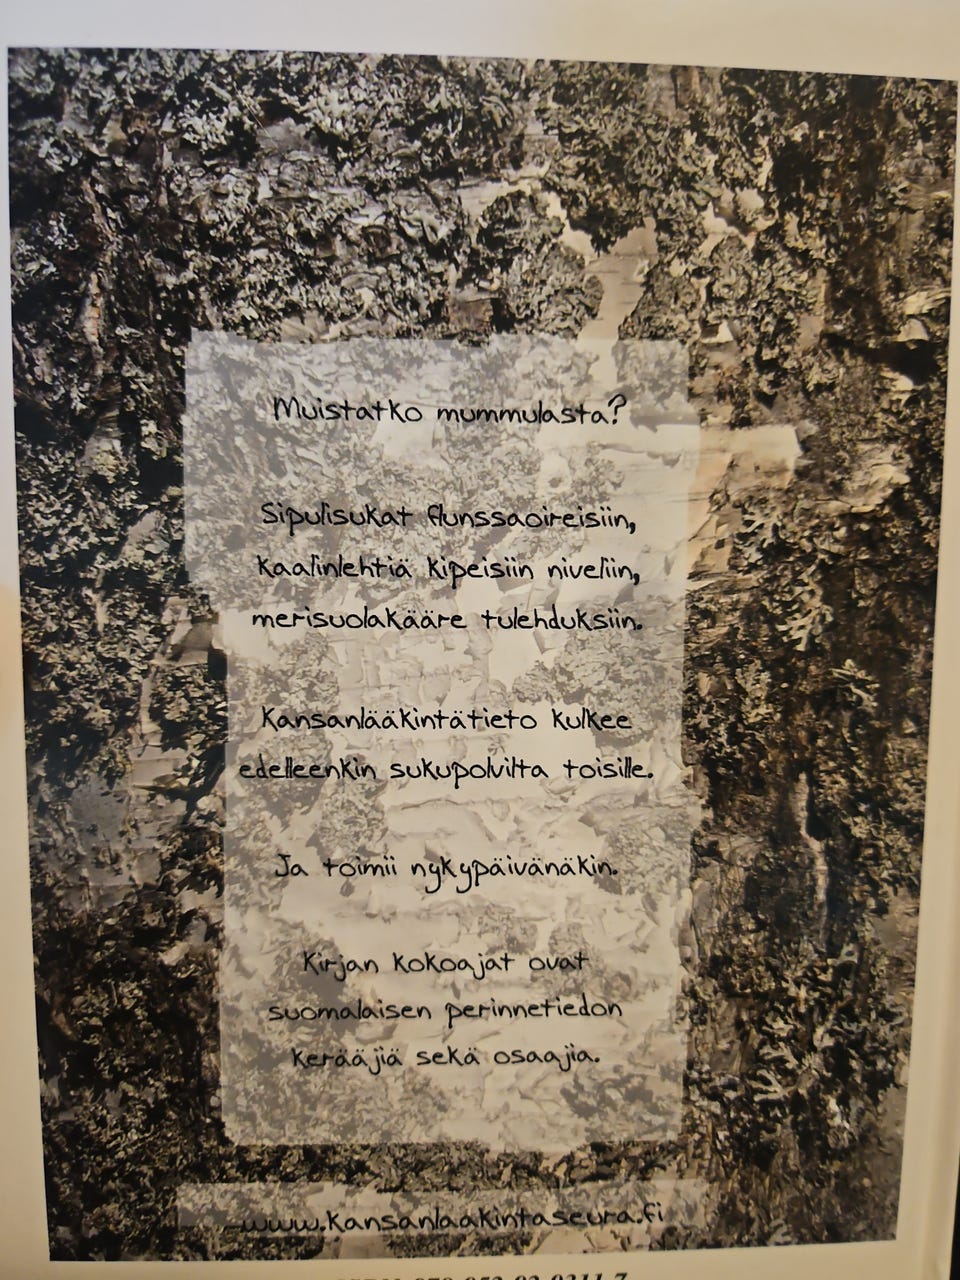 Muistatko mummulasta?
Sipulisukat flunssaoireisiin,
kaalinlehtiä kipeisiin niveliin,
merisuolakääre tulehduksiin.
Kansanlääkintätieto kulkee
edelleenkin sukupolvilta toisille.
Ja toimii nykypäivänäkin.
Kirjan kokoajat ovat
suomalaisen perinnetiedon
kerääjiä sekä osaajia.
www.kansanlaakintaseura.fi